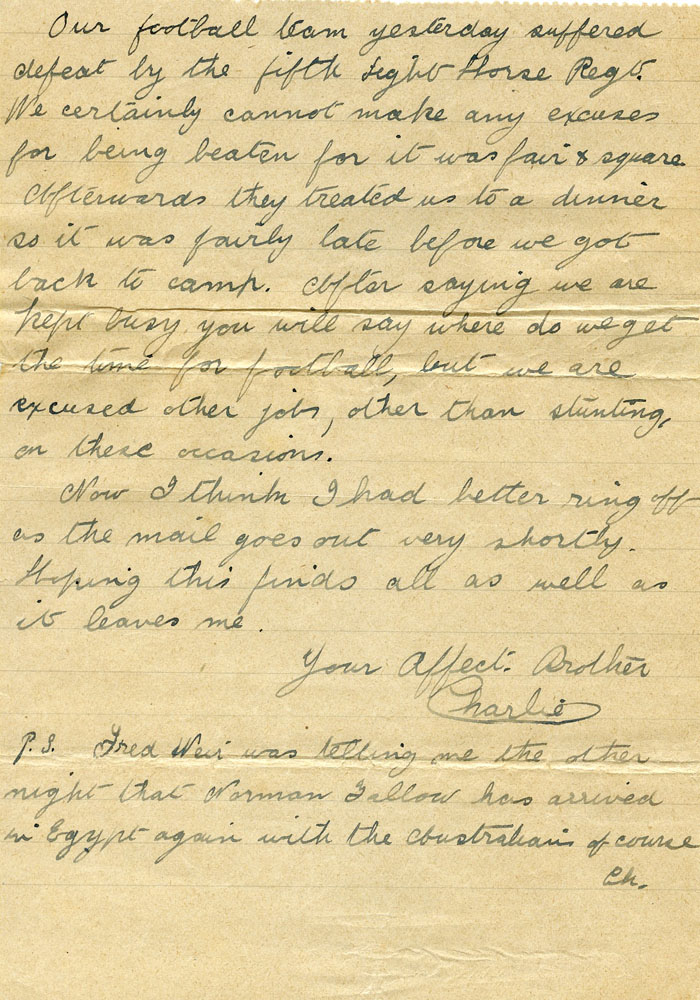 Our football team yesterday suffered
defeat by the fifth Light Horse Regt.
We certainly cannot make any excuses
for being beaten for it was fair & square
Afterwards they treated us to a dinner
so it was fairly late before we got
back to camp. After saying we are
kept busy you will say where do we get
the time for football, but we are
excused other jobs, other than stunting,
on these occasions.
Now I think I had better ring off
as the mail goes out very shortly.
Hoping this finds all as well as
it leaves me.
Your Affect. Brother
Charlie
P.S. Fred Weir was telling me the other
night that Norman has arrived
in Egypt again with the Australians of course
Ch.